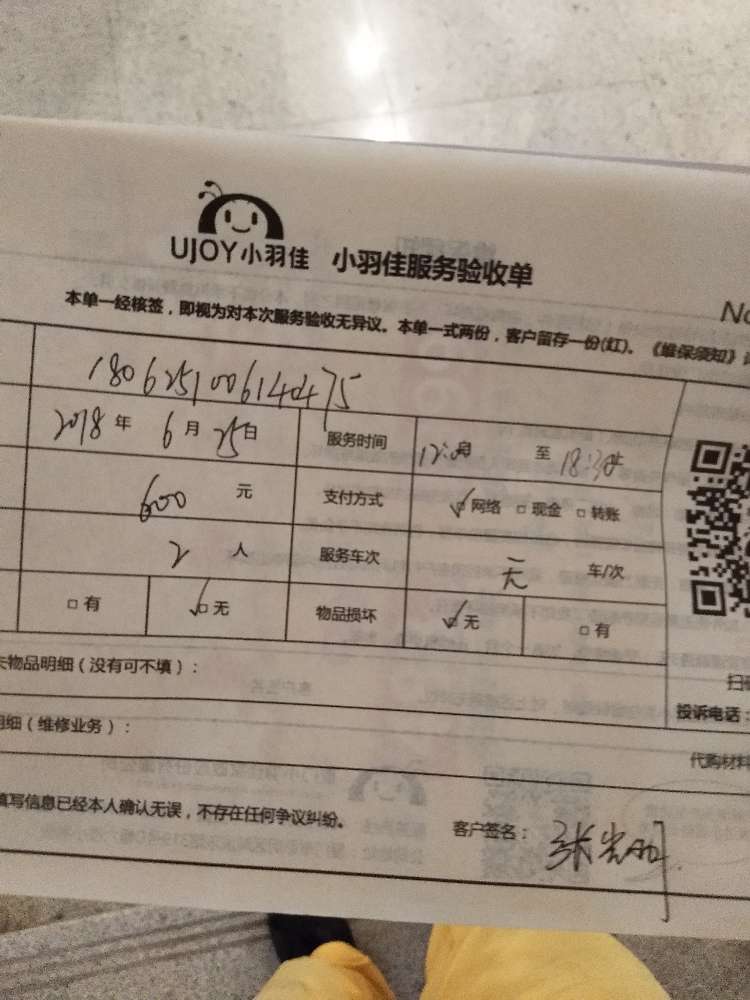 UJOY小羽佳 小羽佳服务验收单
No
本单一经核签，即视为对本次服务验收无异议。本单一式两份，客户留存一份(红)。《维保须知》
180625100614475
2018年 6月 25日 服务时间 12:00 至 18:30
600 元 支付方式 ☑网络 □现金 □转账
2 人 服务车次 无 车/次
□有 ☑无 物品损坏 ☑无 □有
物品明细（没有可不填）：
扫
投诉电话：
明细（维修业务）：
代购材料
填写信息已经本人确认无误，不存在任何争议纠纷。
客户签名：